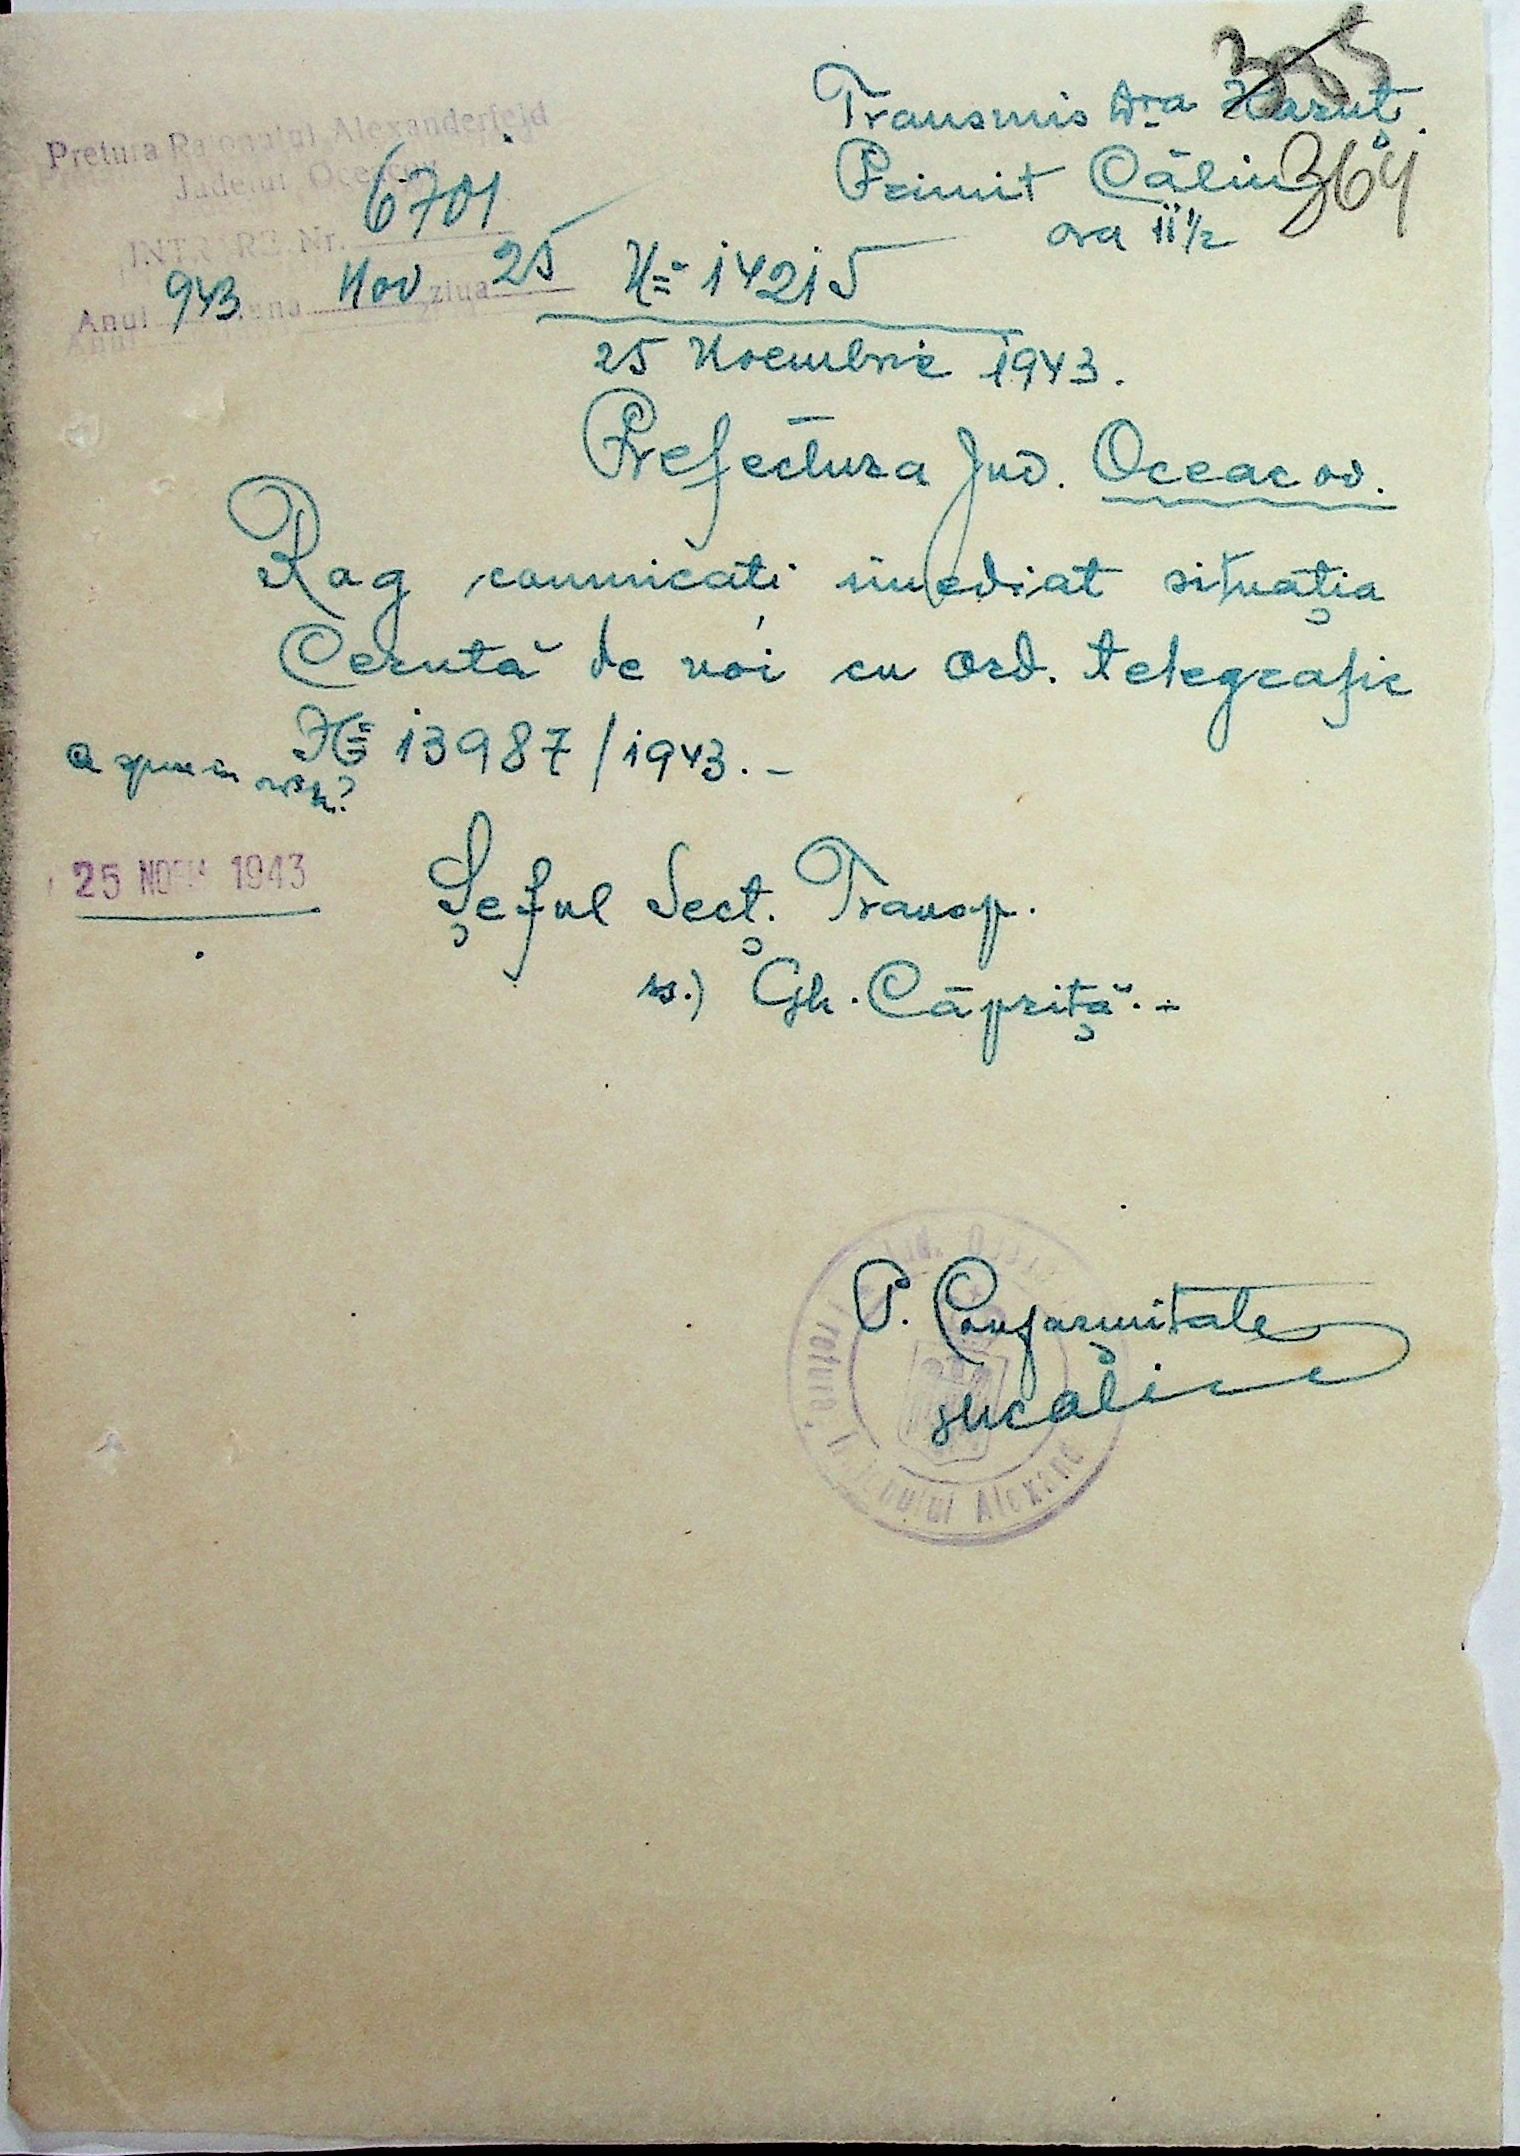 385
Transmis D-ra Haruț.
Primit Călin
364
ora 11 1/2
Pretura Raionului Alexanderfeld
Judetul Oceacov
INTRARE Nr. 6701
Anul 943 Luna Nov ziua 25
No 14215
25 Noembrie 1943.
Prefectura Jud. Oceacov.
Rog comunicati imediat situația
Cerută de noi cu ord. telegrafic
No 13987/1943.-
25 NOEM 1943
Șeful Secț. Transp.
ss.) Gh. Căpriță.-
P. Conformitate
Pretura Raionului Alexand
Jud.